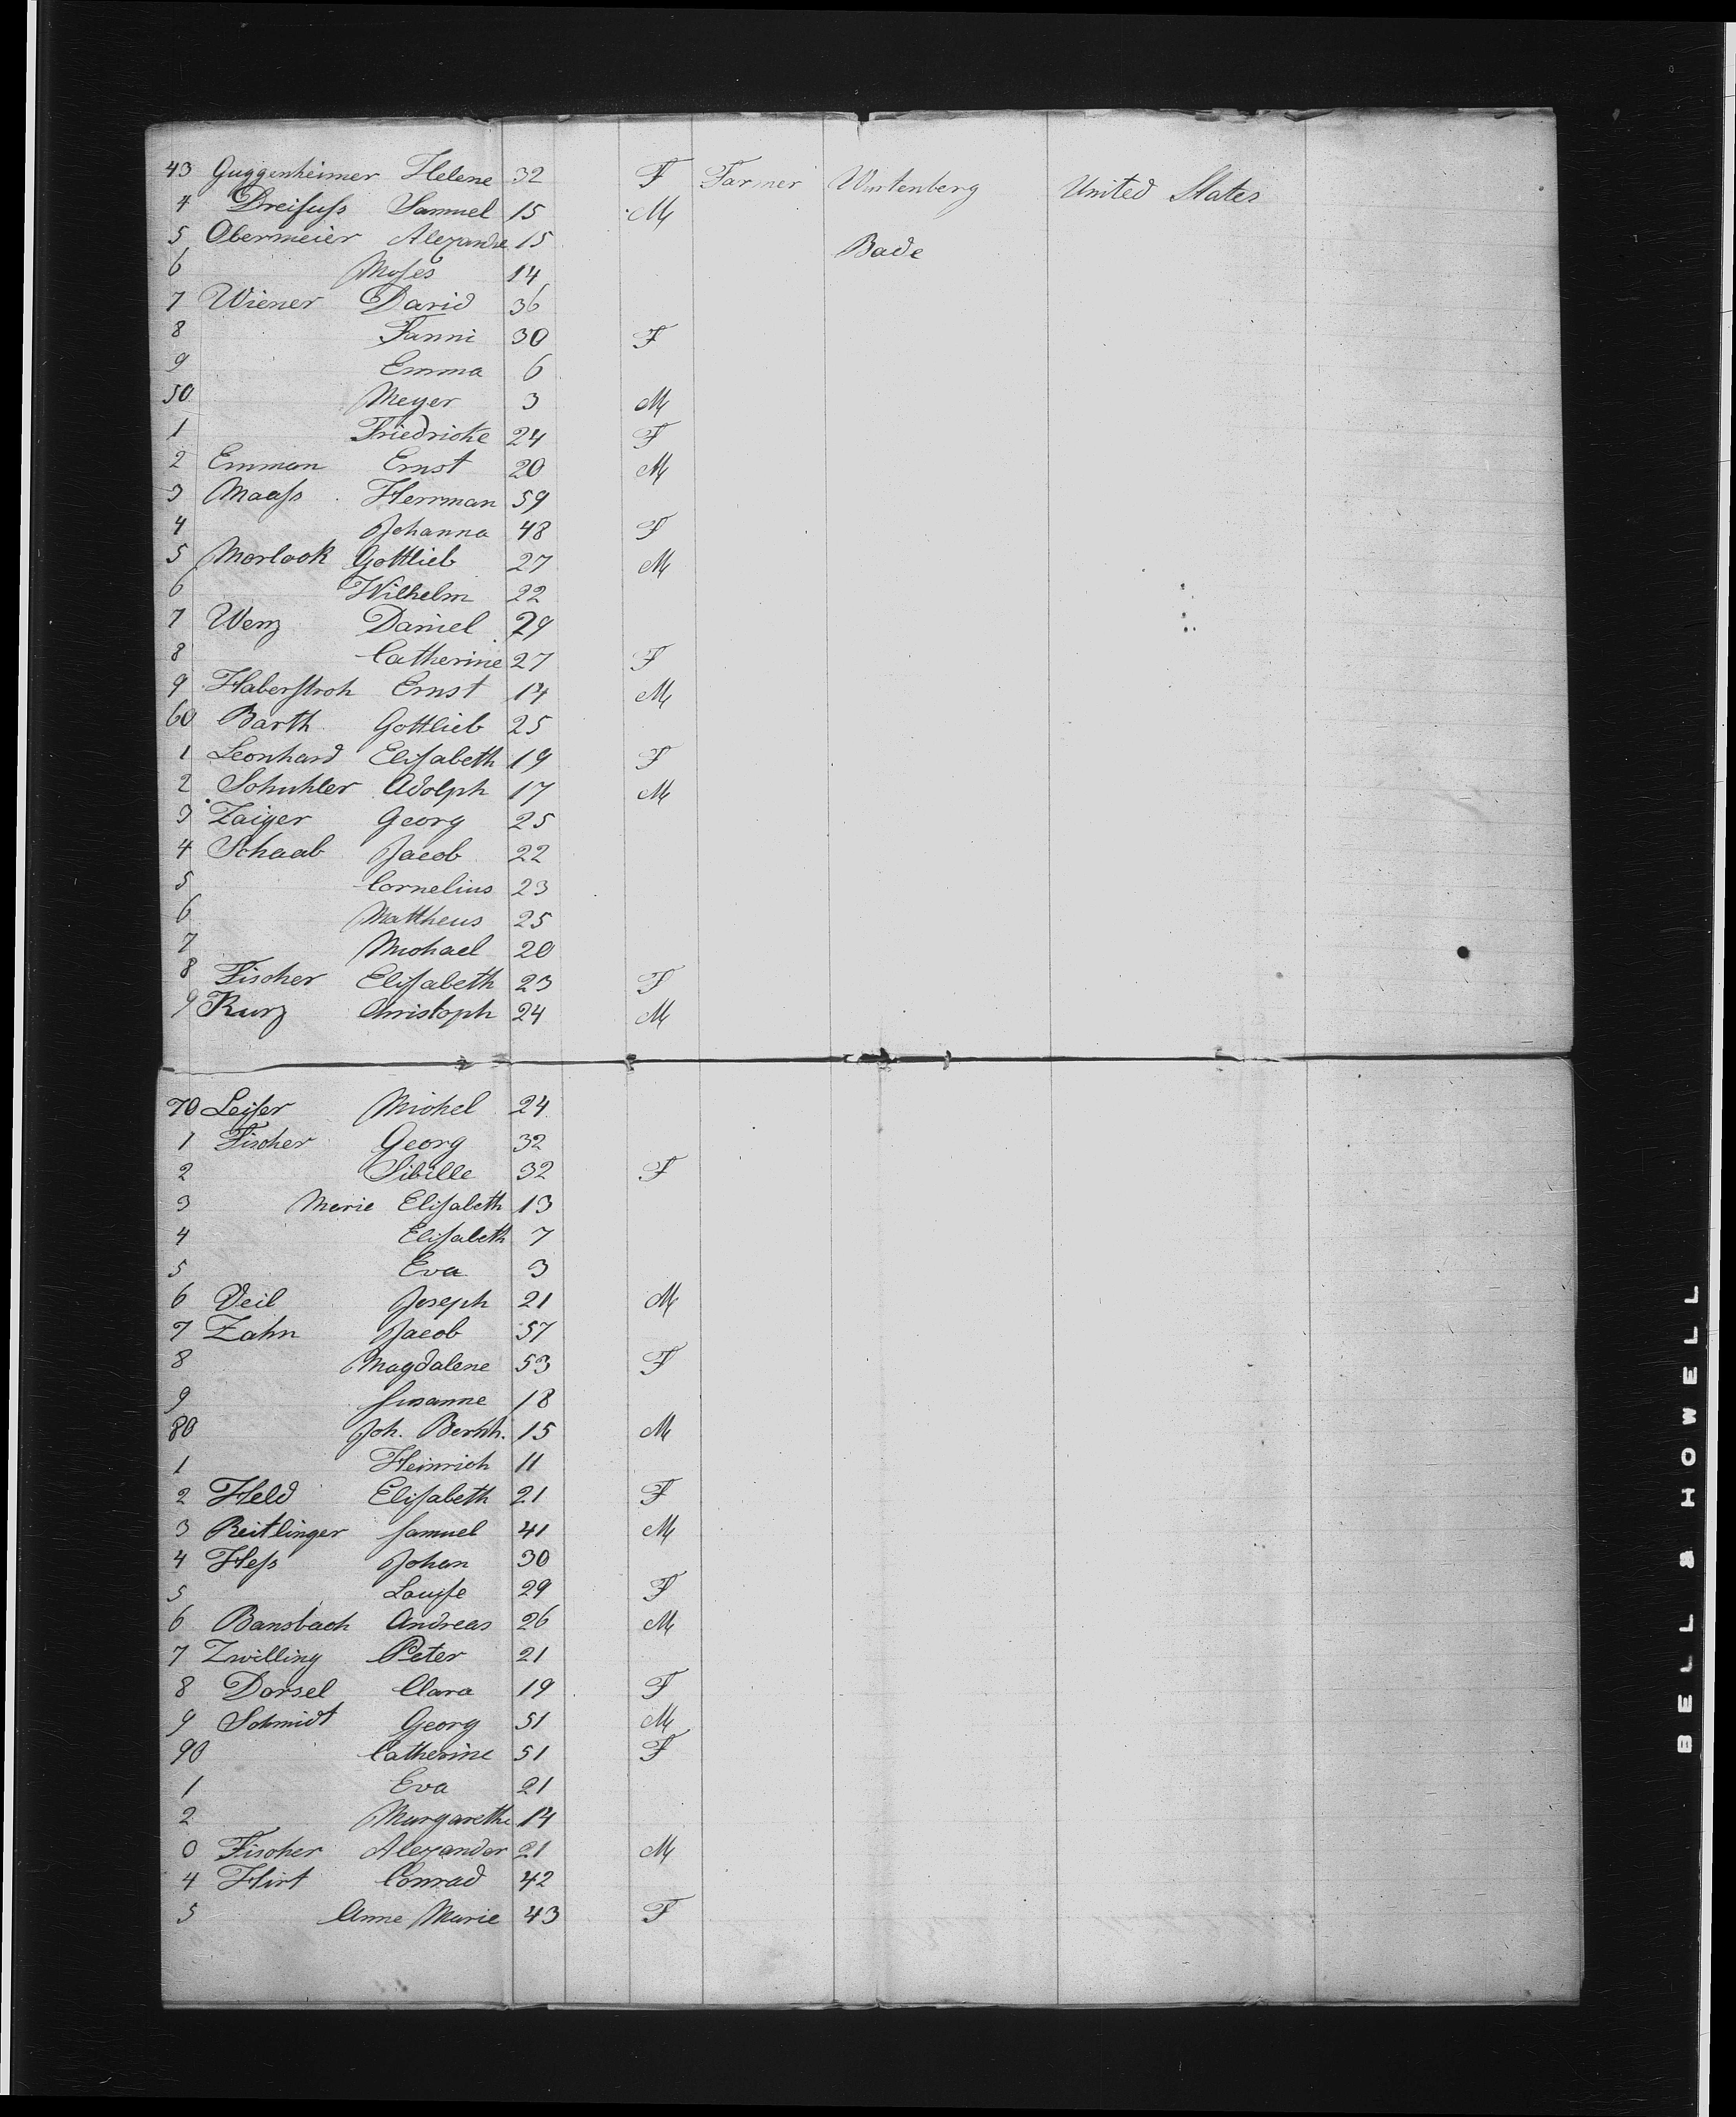 43 Guggenheimer Helene 32 F Farmer Wurtenberg United States
4 Dreifuſs Samuel 15 M
5 Obermeier Alexandre 15 Bade
6 Moſes 14
7 Wiener David 36
8 Fanni 30 F
9 Emma 6
50 Meyer 3 M
1 Friedricke 24 F
2 Emman Ernst 20 M
3 Maaſs Herrman 59
4 Johanna 48 F
5 Morlock Gottlieb 27 M
6 Wilhelm 22
7 Wenz Daniel 29
8 Catherine 27 F
9 Haberſtroh Ernst 14 M
60 Barth Gottlieb 25
1 Leonhard Eliſabeth 19 F
2 Schuhler Adolph 17 M
3 Zaiger Georg 25
4 Schaab Jacob 22
5 Cornelius 23
6 Mattheus 25
7 Michael 20
8 Fischer Eliſabeth 23 F
9 Kurz Christoph 24 M
70 Leiſer Michel 24
1 Fischer Georg 32
2 Sibille 32 F
3 Marie Eliſabeth 13
4 Eliſabeth 7
5 Eva 3
6 Veil Joseph 21 M
7 Zahn Jacob 57
8 Magdalene 53 F
9 Susanne 18
80 Joh. Bernh. 15 M
1 Heinrich 11
2 Held Eliſabeth 21 F
3 Reitlinger Samuel 41 M
4 Heſs Johan 30
5 Louiſe 29 F
6 Bansbach Andreas 26 M
7 Zwilling Peter 21
8 Dorsel Clara 19 F
9 Schmidt Georg 51 M
90 Catherine 51 F
1 Eva 21
2 Margarethe 14
0 Fischer Alexander 21 M
4 Hirt Conrad 42
5 Anne Marie 43 F
BELL & HOWELL